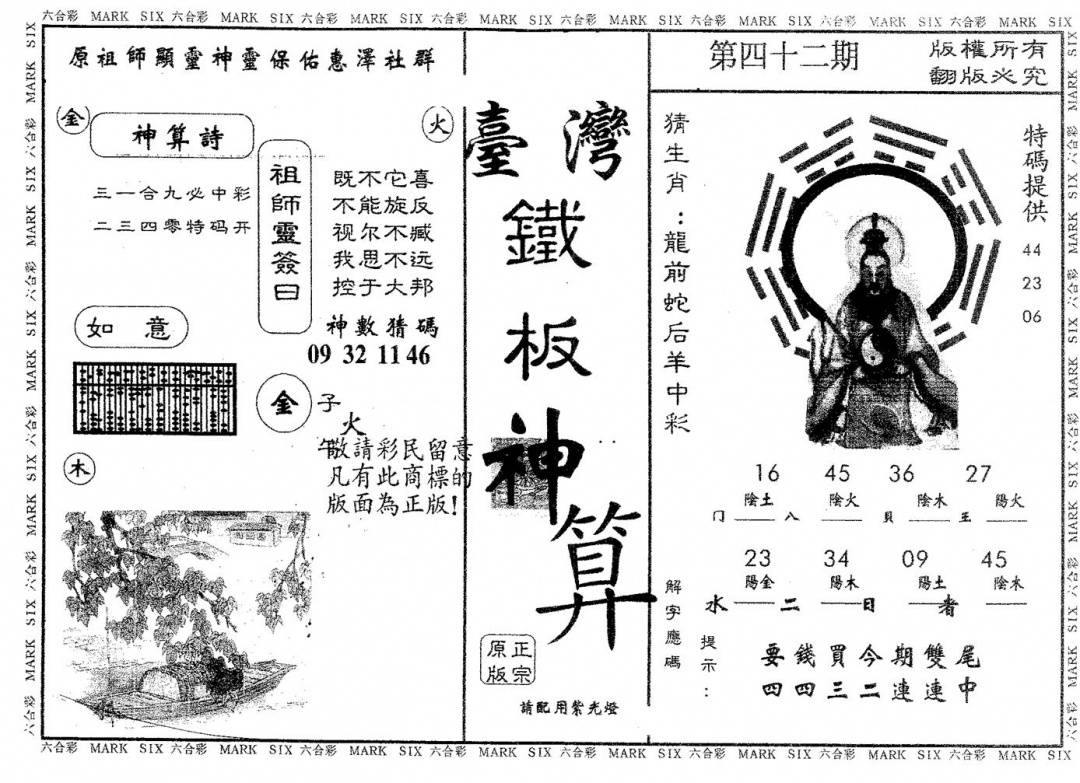 六合彩 MARK SIX 六合彩 MARK SIX 六合彩 MARK SIX 六合彩 MARK SIX 六合彩 MARK SIX 六合彩 MARK SIX 六合彩 MARK SIX 六合彩 MARK SIX
原祖師顯靈神靈保佑惠澤社群
金
神算詩
火
三一合九必中彩
二三四零特码开
祖師靈簽曰
既不它喜
不能旋反
视尔不臧
我思不远
控于大邦
神數猜碼
09 32 11 46
如意
金
子
火
午
敬請彩民留意
凡有此商標的
版面為正版!
木
臺灣
鐵板神算
正宗
原版
請配用紫光燈
第四十二期
版權所有
翻版必究
猜生肖:龍前蛇后羊中彩
特碼提供
44
23
06
16 45 36 27
陰土 陰火 陰木 陽火
门 八 貝 王
23 34 09 45
陽金 陽木 陽土 陰水
水 二 日 者
解字應碼
提示:
要錢買今期雙尾
四四三二連連中
六合彩 MARK SIX 六合彩 MARK SIX 六合彩 MARK SIX 六合彩 MARK SIX 六合彩 MARK SIX 六合彩 MARK SIX 六合彩 MARK SIX 六合彩 MARK SIX